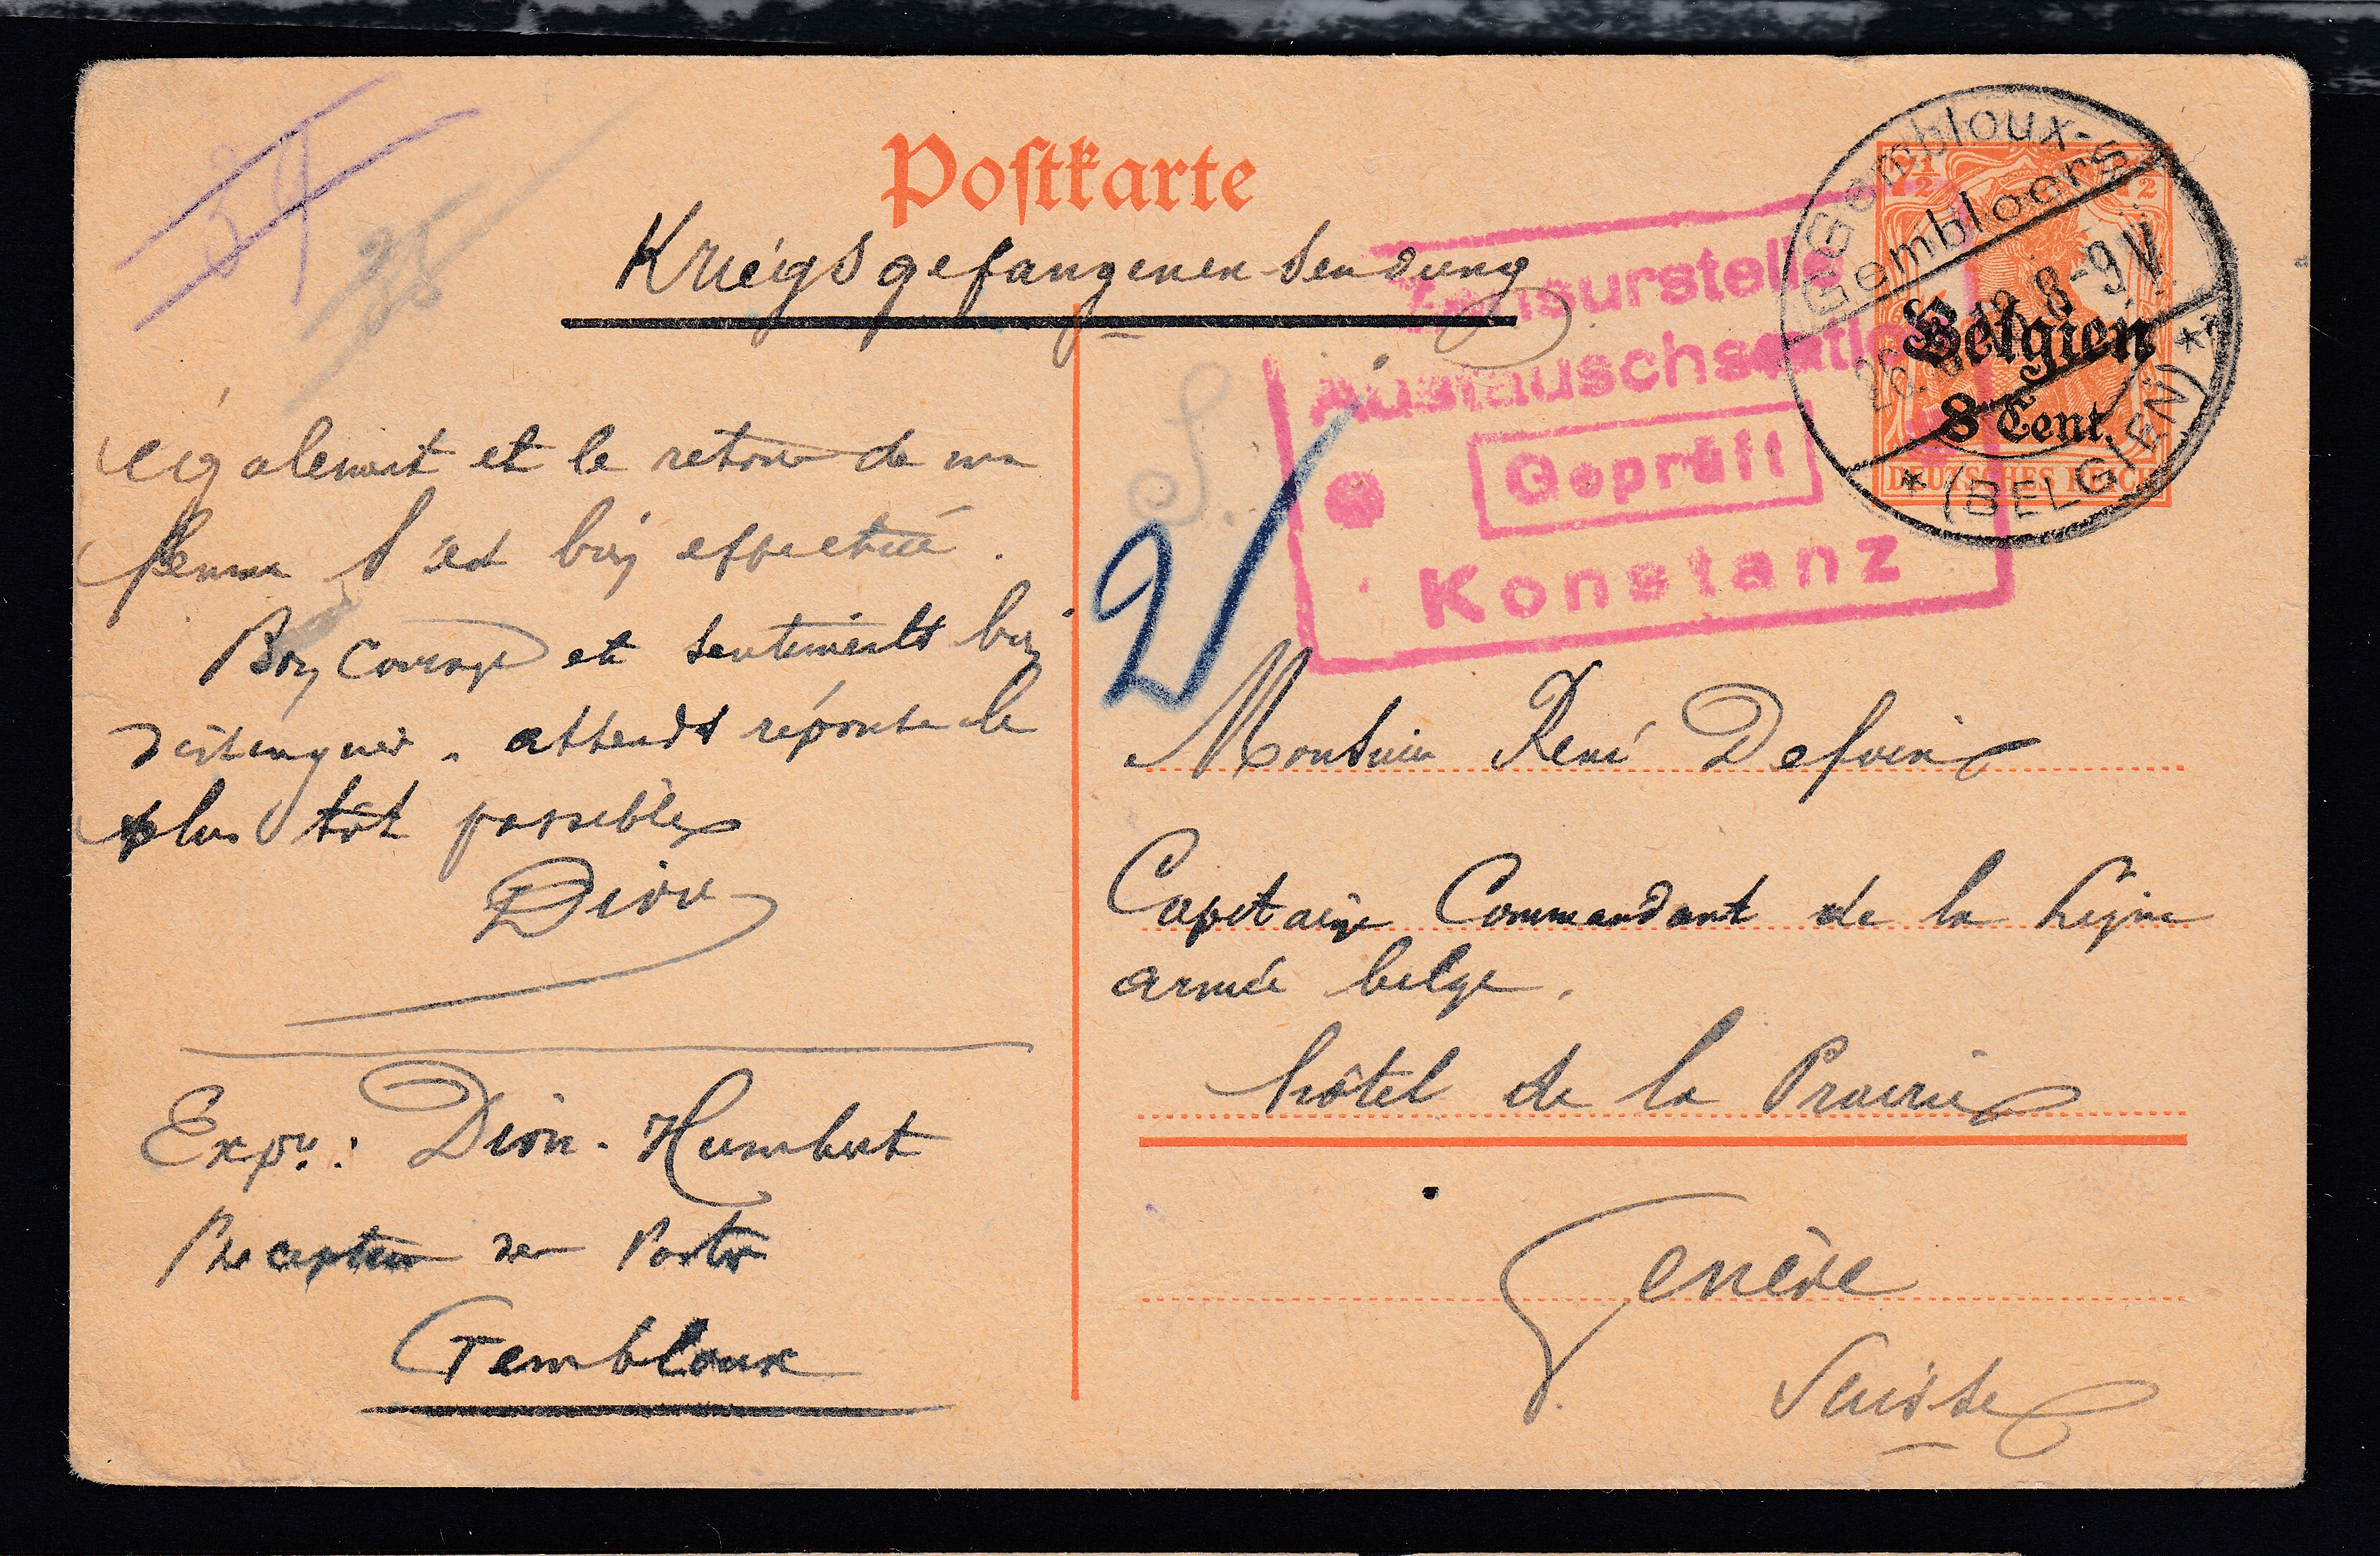 Postkarte
Kriegsgefangenen Sendung
34
28
également et le retour de ma
femme s'est bien effectué.
Bon courage et sentiments bien
distingués. attends réponse le
plus tôt possible
Dion
Expr.: Dion-Humbert
Percepteur des Postes
Gembloux
7½
Belgien
8 Cent.
DEUTSCHES REICH
Gembloux-S
Gembloers
8-9 V
* (BELGIEN) *
Zensurstelle
Austauschstation
Geprüft
Konstanz
S.
2
Monsieur René
Capitaine Commandant de la ligne
armée belge.
hôtel de la Prairie
Genève
Suisse